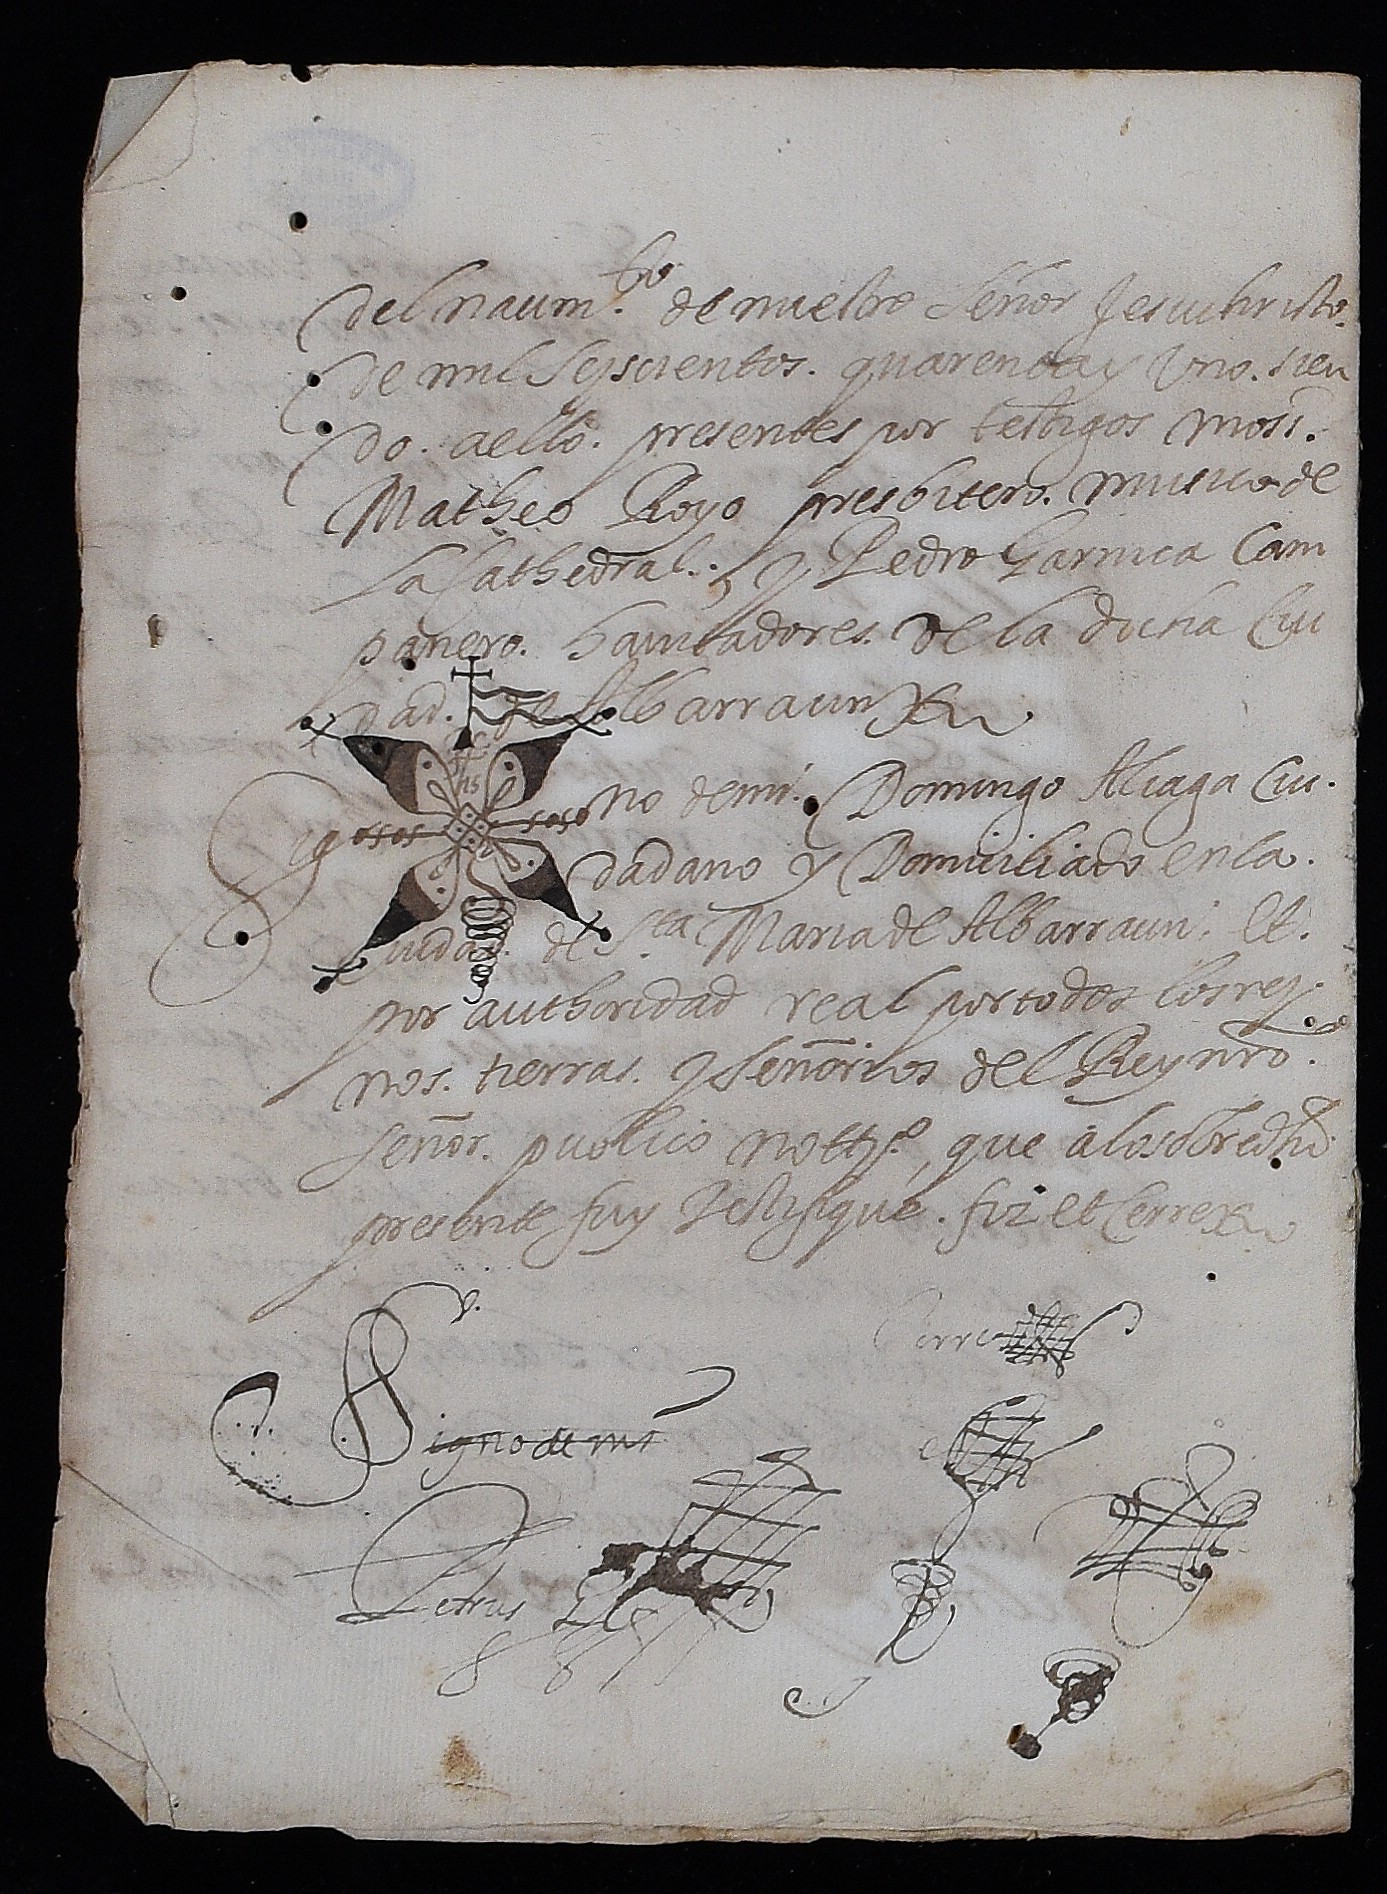 del nacim.to de nuestro Señor Jesuchristo.
de mil Seyscientos. quarenta y Uno. sien
do. aello. presentes por testigos moss.
Matheo Royo presbitero. musico de
la Cathedral. y Pedro Garnica Cam
panero. hauitadores. de la dicha Ciu
dad. de Albarracin
Sig no de mi. Domingo Aliaga Ciu.
dadano y Domiciliado en la.
Ciudad. de S.ta Maria de Albarracin. et.
por authoridad real por todos los rey.
nos. tierras. y señorios del Rey nro.
señor. publico nott.o, que a lo sobredho
presente fuy testifique. fiz et Cerre
Signo de mi
Petrus